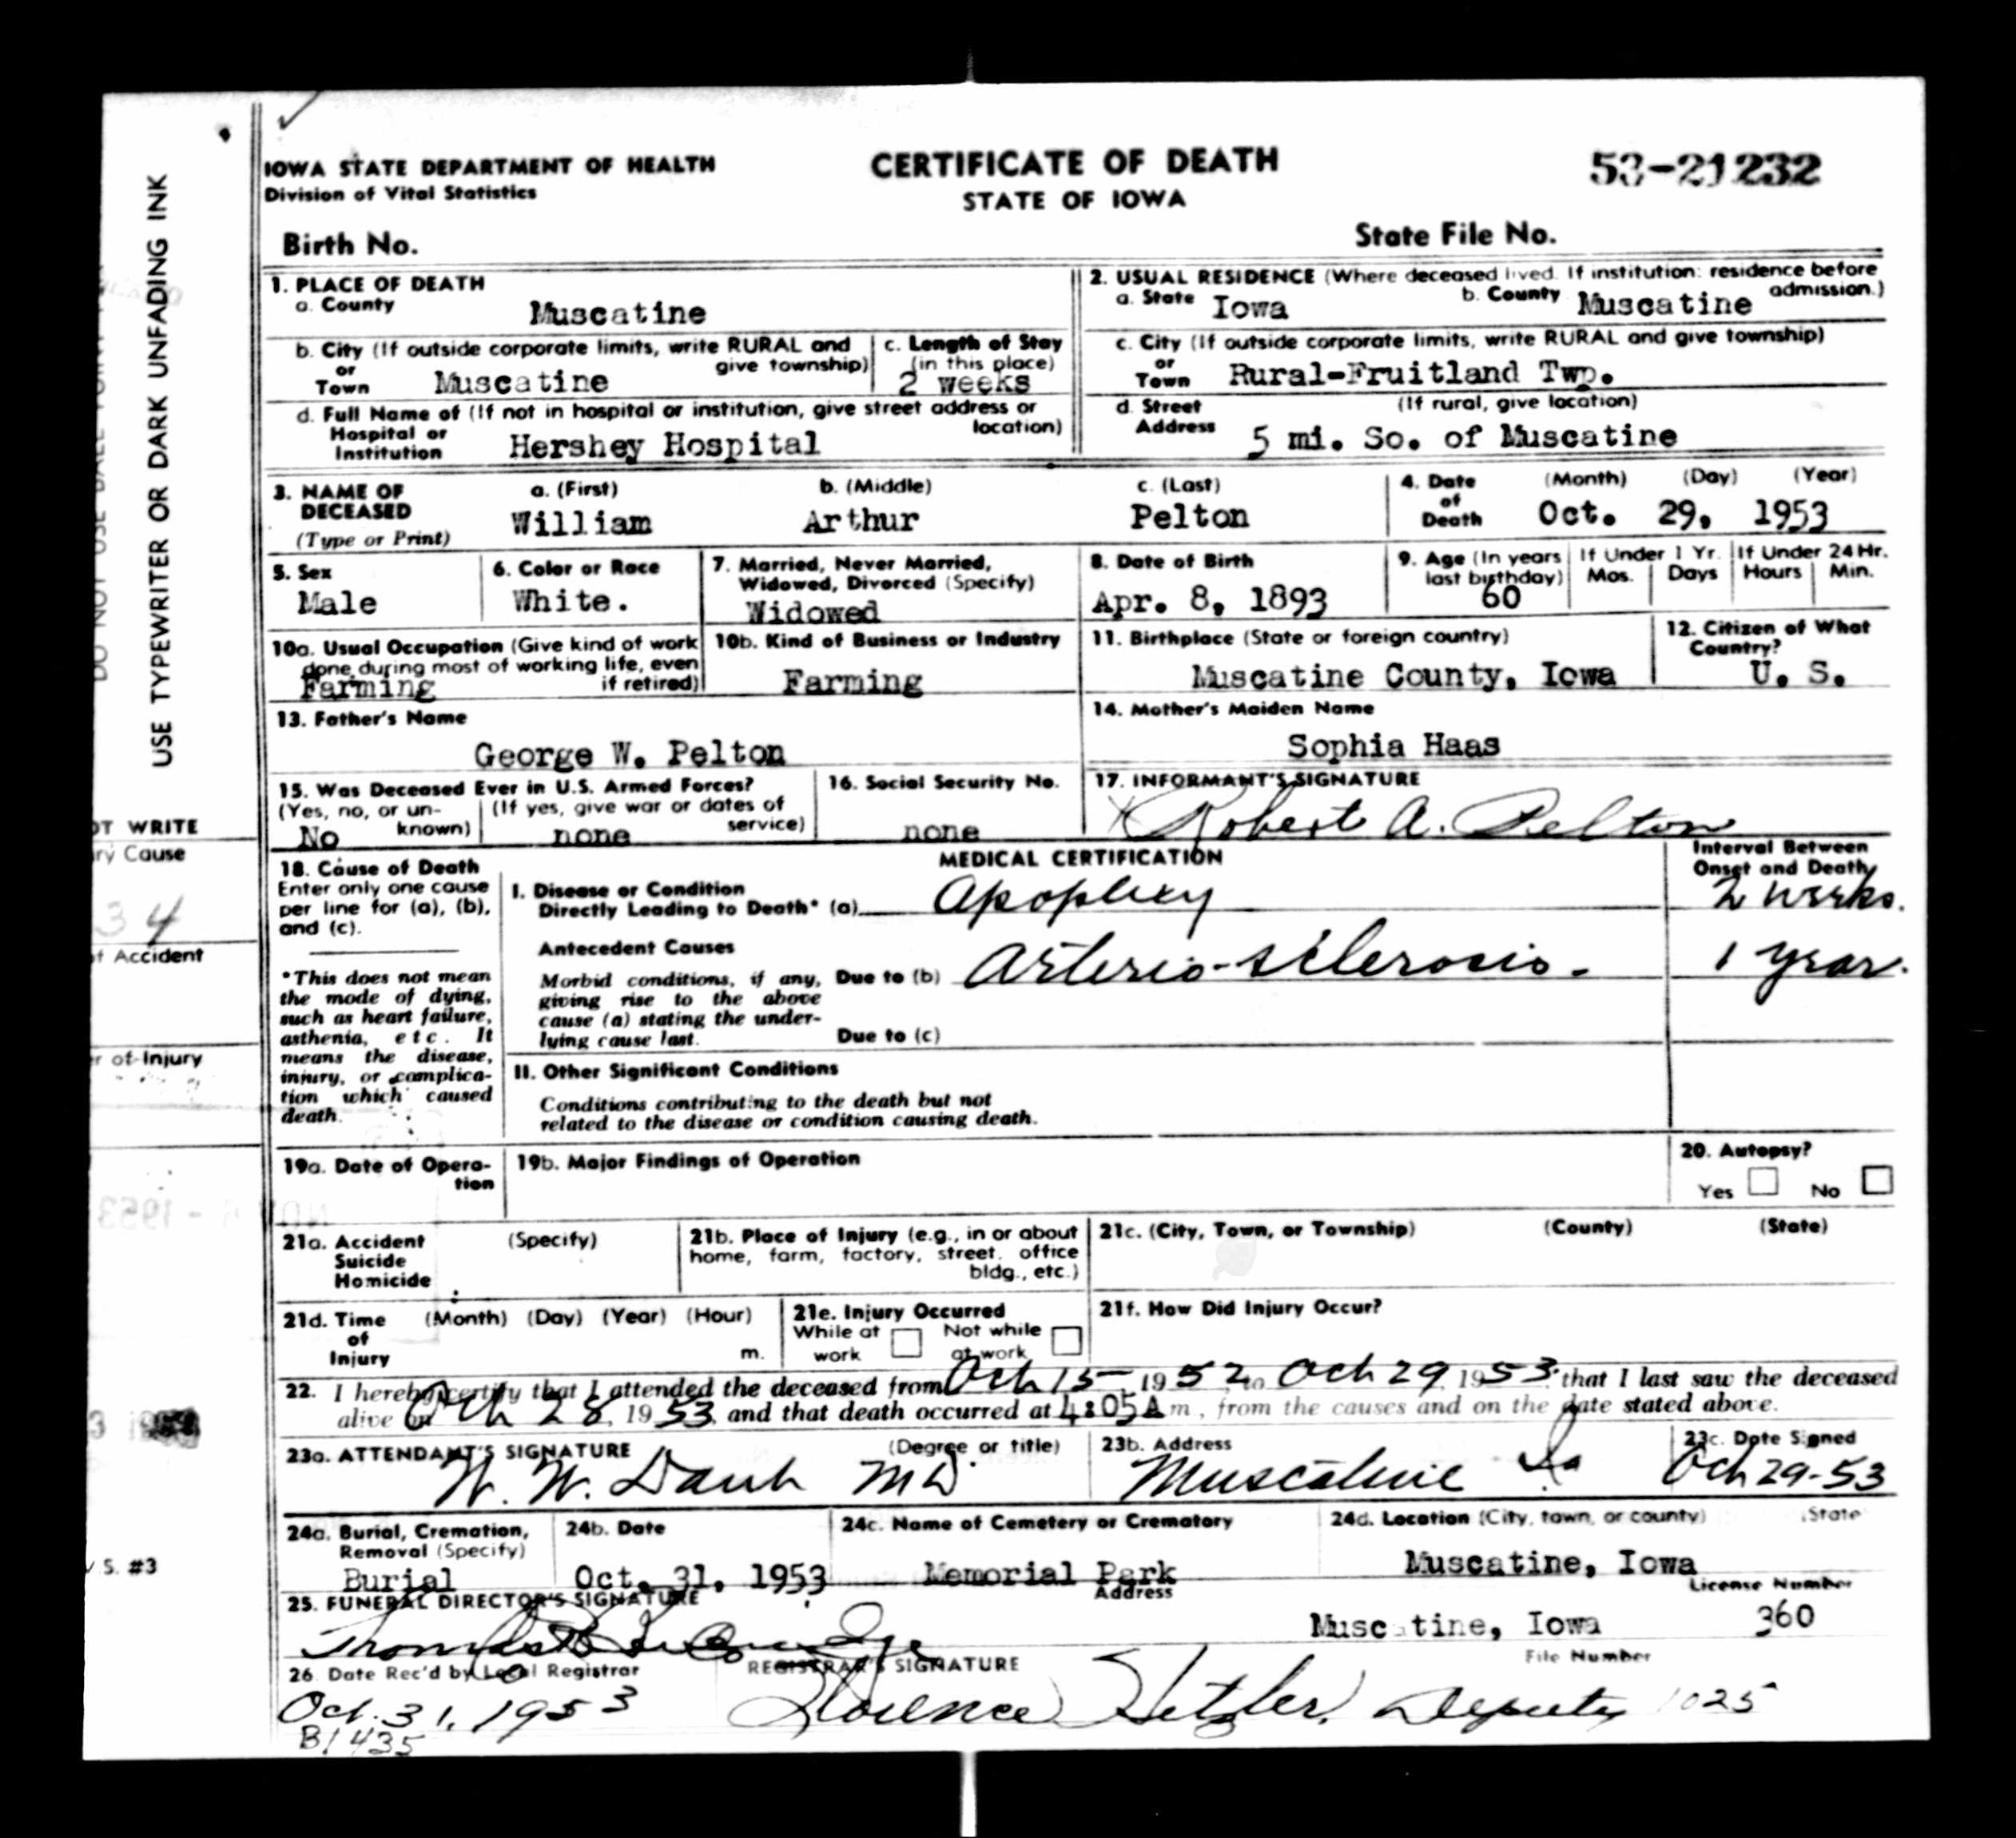 IOWA STATE DEPARTMENT OF HEALTH
Division of Vital Statistics
CERTIFICATE OF DEATH
STATE OF IOWA
53-21232
Birth No.
State File No.
USE TYPEWRITER OR DARK UNFADING INK
1. PLACE OF DEATH
a. County
Muscatine
b. City (If outside corporate limits, write RURAL and give township)
or
Town
Muscatine
c. Length of Stay
(in this place)
2 weeks
d. Full Name of (If not in hospital or institution, give street address or location)
Hospital or
Institution
Hershey Hospital
2. USUAL RESIDENCE (Where deceased lived. If institution: residence before admission.)
a. State Iowa
b. County Muscatine
c. City (If outside corporate limits, write RURAL and give township)
or
Town Rural-Fruitland Twp.
d. Street
Address
(If rural, give location)
5 mi. So. of Muscatine
3. NAME OF
DECEASED
(Type or Print)
a. (First)
b. (Middle)
c. (Last)
William Arthur Pelton
4. Date
of
Death
(Month) (Day) (Year)
Oct. 29, 1953
5. Sex
Male
6. Color or Race
White.
7. Married, Never Married,
Widowed, Divorced (Specify)
Widowed
8. Date of Birth
Apr. 8, 1893
9. Age (In years
last birthday)
60
If Under 1 Yr.
Mos. Days
If Under 24 Hr.
Hours Min.
10a. Usual Occupation (Give kind of work
done during most of working life, even
if retired)
Farming
10b. Kind of Business or Industry
Farming
11. Birthplace (State or foreign country)
Muscatine County, Iowa
12. Citizen of What
Country?
U. S.
13. Father's Name
George W. Pelton
14. Mother's Maiden Name
Sophia Haas
15. Was Deceased Ever in U.S. Armed Forces?
(Yes, no, or unknown)
No
(If yes, give war or dates of service)
none
16. Social Security No.
none
17. INFORMANT'S SIGNATURE
Robert A. Pelton
18. Cause of Death
Enter only one cause
per line for (a), (b),
and (c).
*This does not mean
the mode of dying,
such as heart failure,
asthenia, etc. It
means the disease,
injury, or complica-
tion which caused
death.
MEDICAL CERTIFICATION
Interval Between
Onset and Death
I. Disease or Condition
Directly Leading to Death* (a) Apoplexy
2 weeks.
Antecedent Causes
Morbid conditions, if any,
giving rise to the above
cause (a) stating the under-
lying cause last.
Due to (b) Arterio-sclerosis.
1 year.
Due to (c)
II. Other Significant Conditions
Conditions contributing to the death but not
related to the disease or condition causing death.
19a. Date of Opera-
tion
19b. Major Findings of Operation
20. Autopsy?
Yes No
21a. Accident
Suicide
Homicide
(Specify)
21b. Place of Injury (e.g., in or about
home, farm, factory, street, office
bldg., etc.)
21c. (City, Town, or Township) (County) (State)
21d. Time
of
Injury
(Month) (Day) (Year) (Hour)
m.
21e. Injury Occurred
While at
work
Not while
at work
21f. How Did Injury Occur?
22. I hereby certify that I attended the deceased from Oct 15 1952 to Oct 29, 1953, that I last saw the deceased
alive on Oct 28, 1953, and that death occurred at 4:05 A m., from the causes and on the date stated above.
23a. ATTENDANT'S SIGNATURE
(Degree or title)
MD.
23b. Address
Muscatine Ia
23c. Date Signed
Oct 29-53
24a. Burial, Cremation,
Removal (Specify)
Burial
24b. Date
Oct. 31, 1953
24c. Name of Cemetery or Crematory
Memorial Park
24d. Location (City, town, or county) (State
Muscatine, Iowa
25. FUNERAL DIRECTOR'S SIGNATURE
Address
Muscatine, Iowa
License Number
360
26. Date Rec'd by Local Registrar
Oct. 31, 1953
B1435
REGISTRAR'S SIGNATURE
Florence Hetzler, Deputy
File Number
1025
OT WRITE
ry Cause
34
f Accident
r of Injury
S. #3